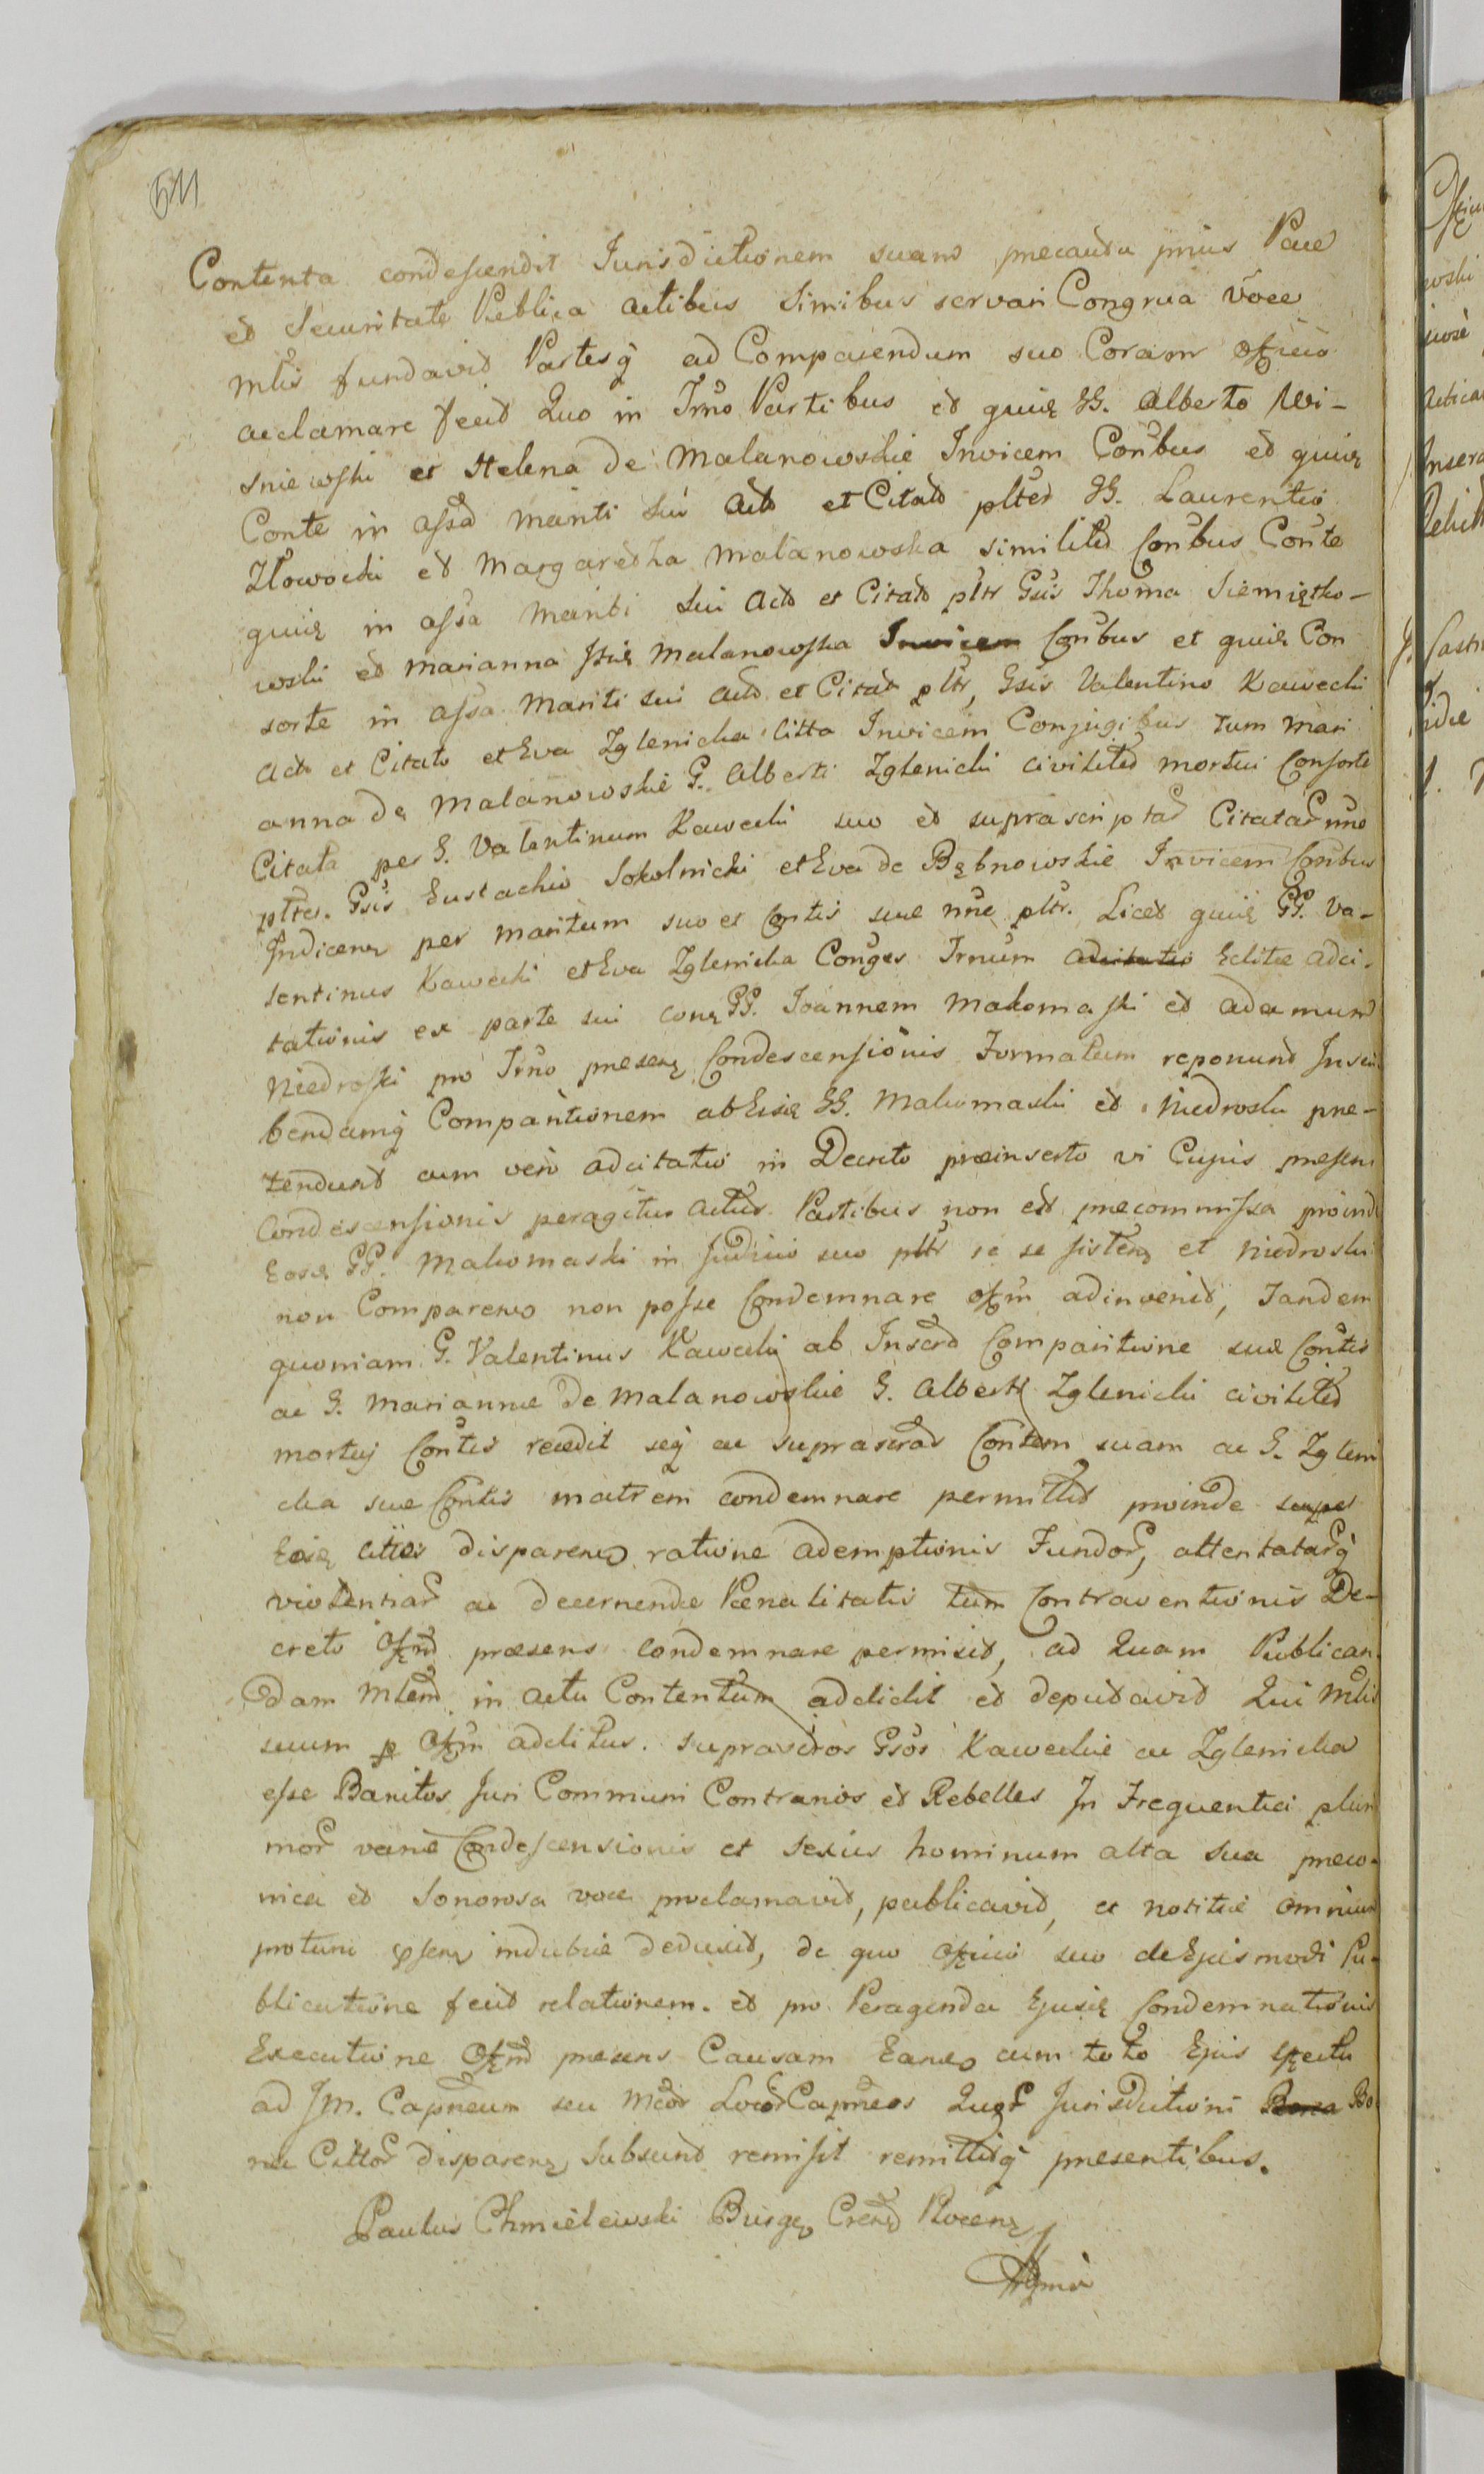 511
Contenta condescendit Jurisdictionem suam precauta prius Pace
et Securitate Publica actibus Simibus servari Congrua Voce
mlis fundavit Partesq ad Comparendum suo Coram offcio
acclamare fecit Quo in Trno Partibus et quię GG. Alberto Wi-
sniewski et Helena de Malanowskie Invicem Conbus et quię
Conte in assa mariti sui Acto et Citato plter GG. Laurentio
Złowocki et Margaretha Malanowska similiter Conbus Conte
quię in assa Mariti sui Acto et Citato pltr Gsis Thoma Siemiętko-
wski et Marianna Malanowska Invicem Conbus et quię Con
sorte in assa Mariti sui Acto et Citato pltr, Gsis Valentino Kawecki
Acto et Citato et Eva Zglenicka Citta Invicem Conjugibus tum Mari
anna de Malanowskie G. Alberti Zglenicki civiliter mortui Consorte
Citata per G. Valentinum Kawecki suo et suprascriptar Citatar nne
plter. Gsis Eustachio Sokolnicki et Eva de Bębnowskie Invicem Conbus
Judicen per maritum suo et Contis sue nne pltr. Licet quię GG. Va-
lentinus Kawecki et Eva Zglenicka Conges Trnum adcitatio Editæ adci-
tationis ex parte sui conę GG. Joannem Makomaski et Adamum
Niedroski pro Trno presenę Condescensionis Formatum reponunt Inscri
bendamq Comparitionem ab Eisę GG. Makomaski et Niedroski pre-
tendunt cum vero adcitatio in Decreto præinserto vi Cujus presen
Condescensionis peragitur actus Partibus non est precommissa proinde
Eosę GG. Makomaski in Judicio suo pltr se se sisten et Niedroski
non Comparen non posse Condemnare offm adinvenit, Tandem
quoniam G. Valentinus Kawecki ab Inserd Comparitione suæ Contis
ac G. Mariannæ de Malanowskie G. Alberti Zglenicki civiliter
mortuj Contis recedit seq ac suprascrad Contem suam ac G. Zgleni
cka suæ Contis matrem condemnare permittit proinde super
Eosę cittos disparen ratione ademptionis Fundor, attentatarq
violentiar ac decernendæ Pænalitatis tum Contraventionis De-
creto Offm præsens condemnare permisit, ad Quam Publican
dam Mlem in actu Contentum addidit et deputavit Qui Mlis
suum p Offm additus. supravdros Gsos Kaweckie ac Zglenicka
esse Banitos Juri Communi Contrarios et Rebelles In Frequentia pluri
mor variæ Condescensionis et sexus hominum alta sua præco-
nica et Sonorosa voce proclamavit, publicavit, et notitiæ omnium
protunc psen indubie deduxit, de quo offcio suo de Ejusmodi Pu-
blicatione fecit relationem. et pro Peragenda Ejusę Condemnationis
Executione Offm presens Causam Eanę cum toto Ejus effectu
ad Jm. Capneum seu Mcor Locor Capneos Quor Jurisdictioni Bona Bo
na Cittor disparen Subsunt remisit remittitq presentibus.
Paulus Chmielewski Burg Crens Plocen